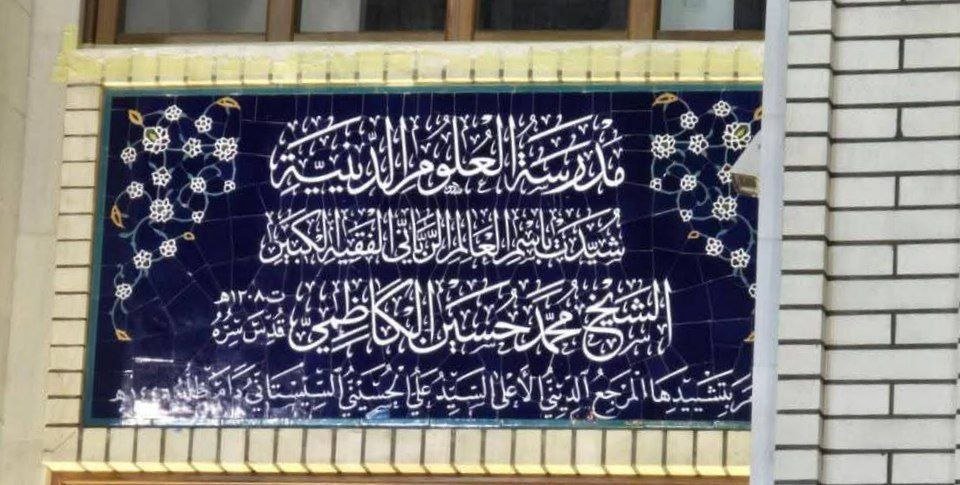 مَدْرَسَةُ العُلُومِ الدِّينِيَّةِ
شُيِّدَتْ بِاسْمِ العَالِمِ الرَّبَّانِيِّ الفَقِيهِ الكَبِيرِ
الشَّيْخِ مُحَمَّد حُسَيْن الكَاظِمِيِّ ت١٣٠٨هـ قُدِّسَ سِرُّهُ
بِتَشْيِيدِهَا المَرْجِعُ الدِّينِيُّ الأَعْلَى السَّيِّدُ عَلِيُّ الحُسَيْنِيُّ السِّيسْتَانِيُّ دَامَ ظِلُّهُ